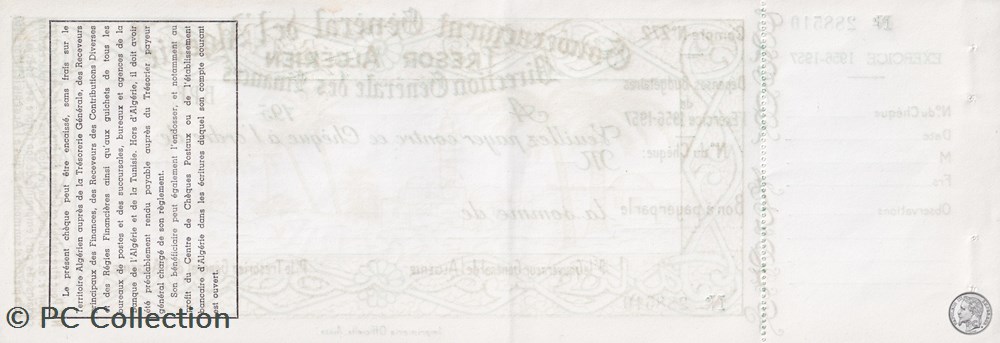 Le présent chèque peut être encaissé, sans frais sur le
Territoire Algérien auprès de la Trésorerie Générale, des Receveurs
Principaux des Finances, des Receveurs des Contributions Diverses
et des Régies Financières ainsi qu'aux guichets de tous les
bureaux de postes et des succursales, bureaux et agences de la
Banque de l'Algérie et de la Tunisie. Hors d'Algérie, il doit avoir
été préalablement rendu payable auprès du Trésorier payeur
général chargé de son règlement.
Son bénéficiaire peut également l'endosser, et notamment au
profit du Centre de Chèques Postaux ou de l'établissement
bancaire d'Algérie dans les écritures duquel son compte courant
est ouvert.
Gouvernement Général de l'Algérie
TRÉSOR ALGÉRIEN
Direction Générale des Finances
Compte N° 272
Dépenses Budgétaires
de
l'Exercice 1956-1957
N° du Chèque:
Bon à payer par le
A
195
Veuillez payer contre ce Chèque à l'ordre
M
la somme de
N° 288510
EXERCICE 1956-1957
N° du Chèque
Date
M
Frs
Observations
N° 288510
© PC Collection